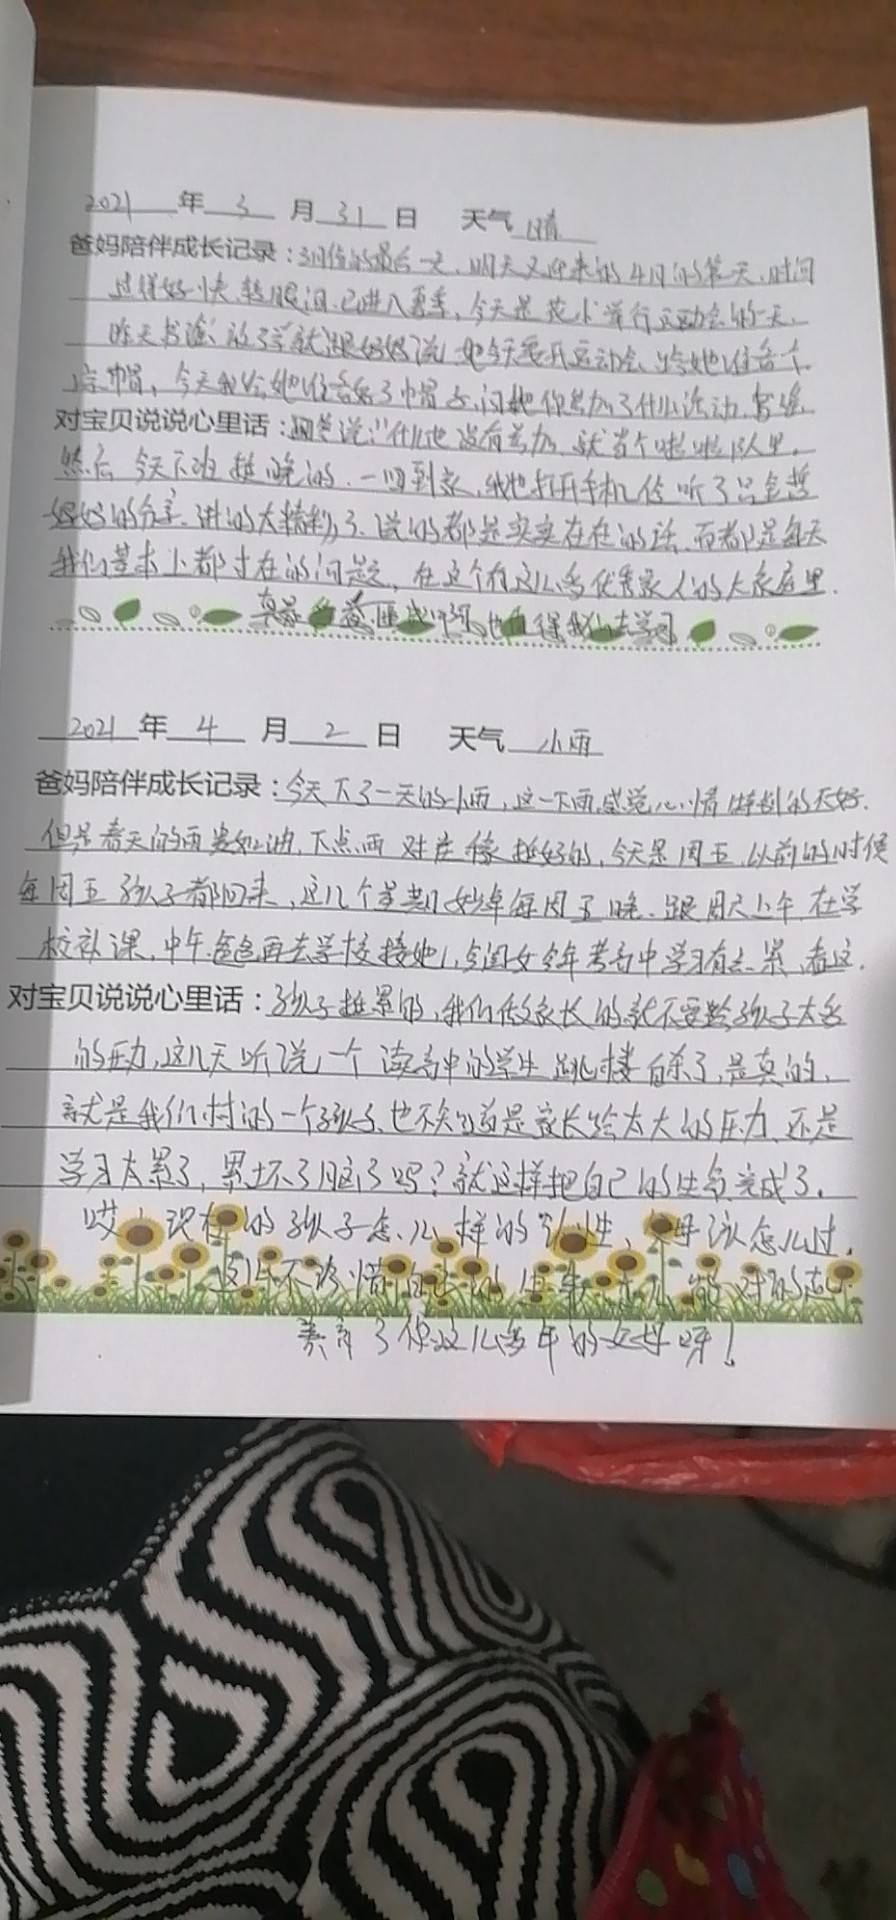 2021年3月31日 天气 晴
爸妈陪伴成长记录：3月份的最后一天,明天又迎来的4月的第一天,时间
过得好快,转眼间,已进入夏季,今天是花小举行运动会的一天,
昨天书涵放了学就跟妈妈说,她今天要开运动会,给她准备个
凉帽,今天我给她准备好了帽子,问她你参加了什么活动,书涵
对宝贝说说心里话：回答说:"什么也没有参加,就当个啦啦队人里。
然后今天下班挺晚的,一回到家,我也打开手机听了
妈妈的分享,讲的太精彩了,说的都是实实在在的话,而都是每天
我们基本上都才在的问题,在这个有这么多优秀家人的大家庭里.
真是受益匪浅呀,也值得我们去学习
2021年4月2日 天气 小雨
爸妈陪伴成长记录：今天下了一天的小雨,这一下雨感觉心情特别的不好.
但是春天的雨贵如油,下点雨对庄稼挺好的,今天是周五,以前的时候
每周五孩子都回来,这几个星期妙卓每周五晚,跟周六上午在学
校补课,中午爸爸再去学校接她,闺女今年考高中学习有点累,看这
对宝贝说说心里话：孩子挺累的,我们做家长的就不要给孩子太多
的压力,这几天听说一个读高中的学生跳楼自杀了,是真的,
就是我们村的一个孩子,也不知道是家长给太大的压力,还是
学习太累了,累坏了脑子吗?就这样把自己的生命完成了.
哎,现在的孩子怎么样的,父母该怎么过,
这么不珍惜自己的生命,怎么能对的起
养育了你这么多年的父母呀!